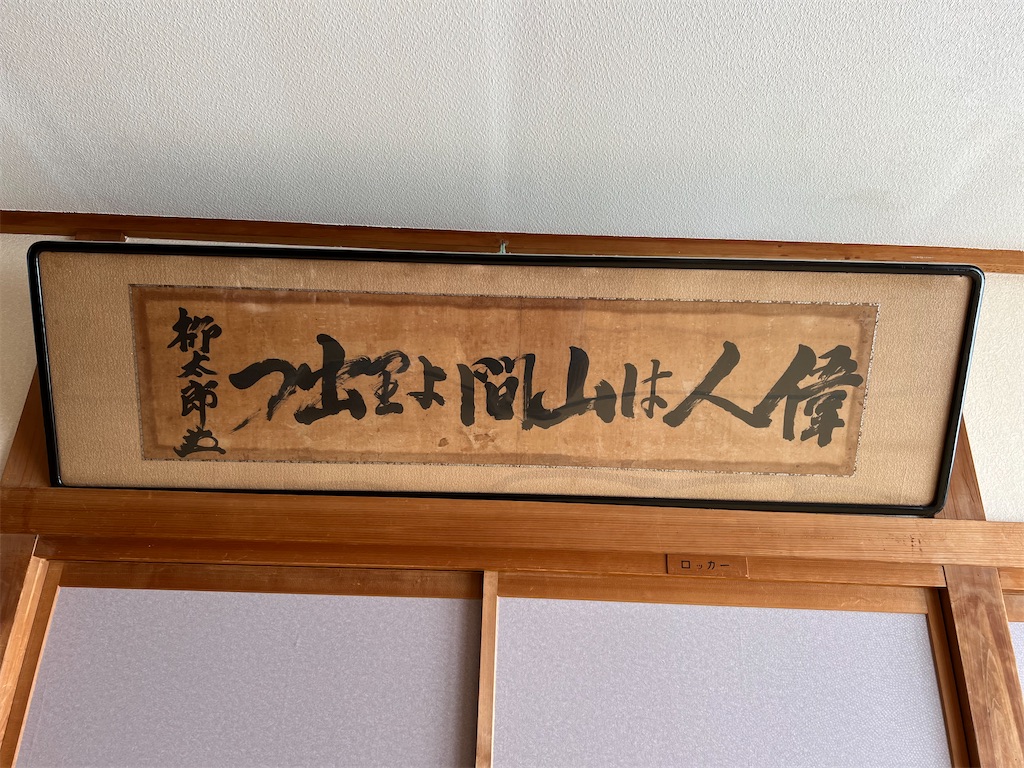 偉人は山間より出つ
柳太郎書
ロッカー